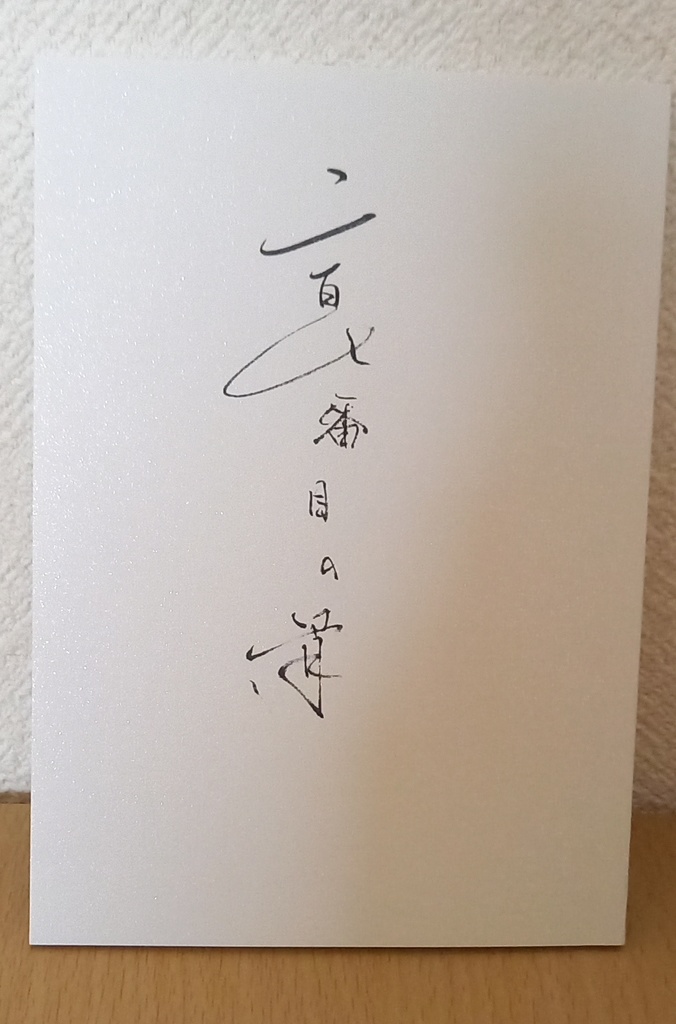 二百七番目の